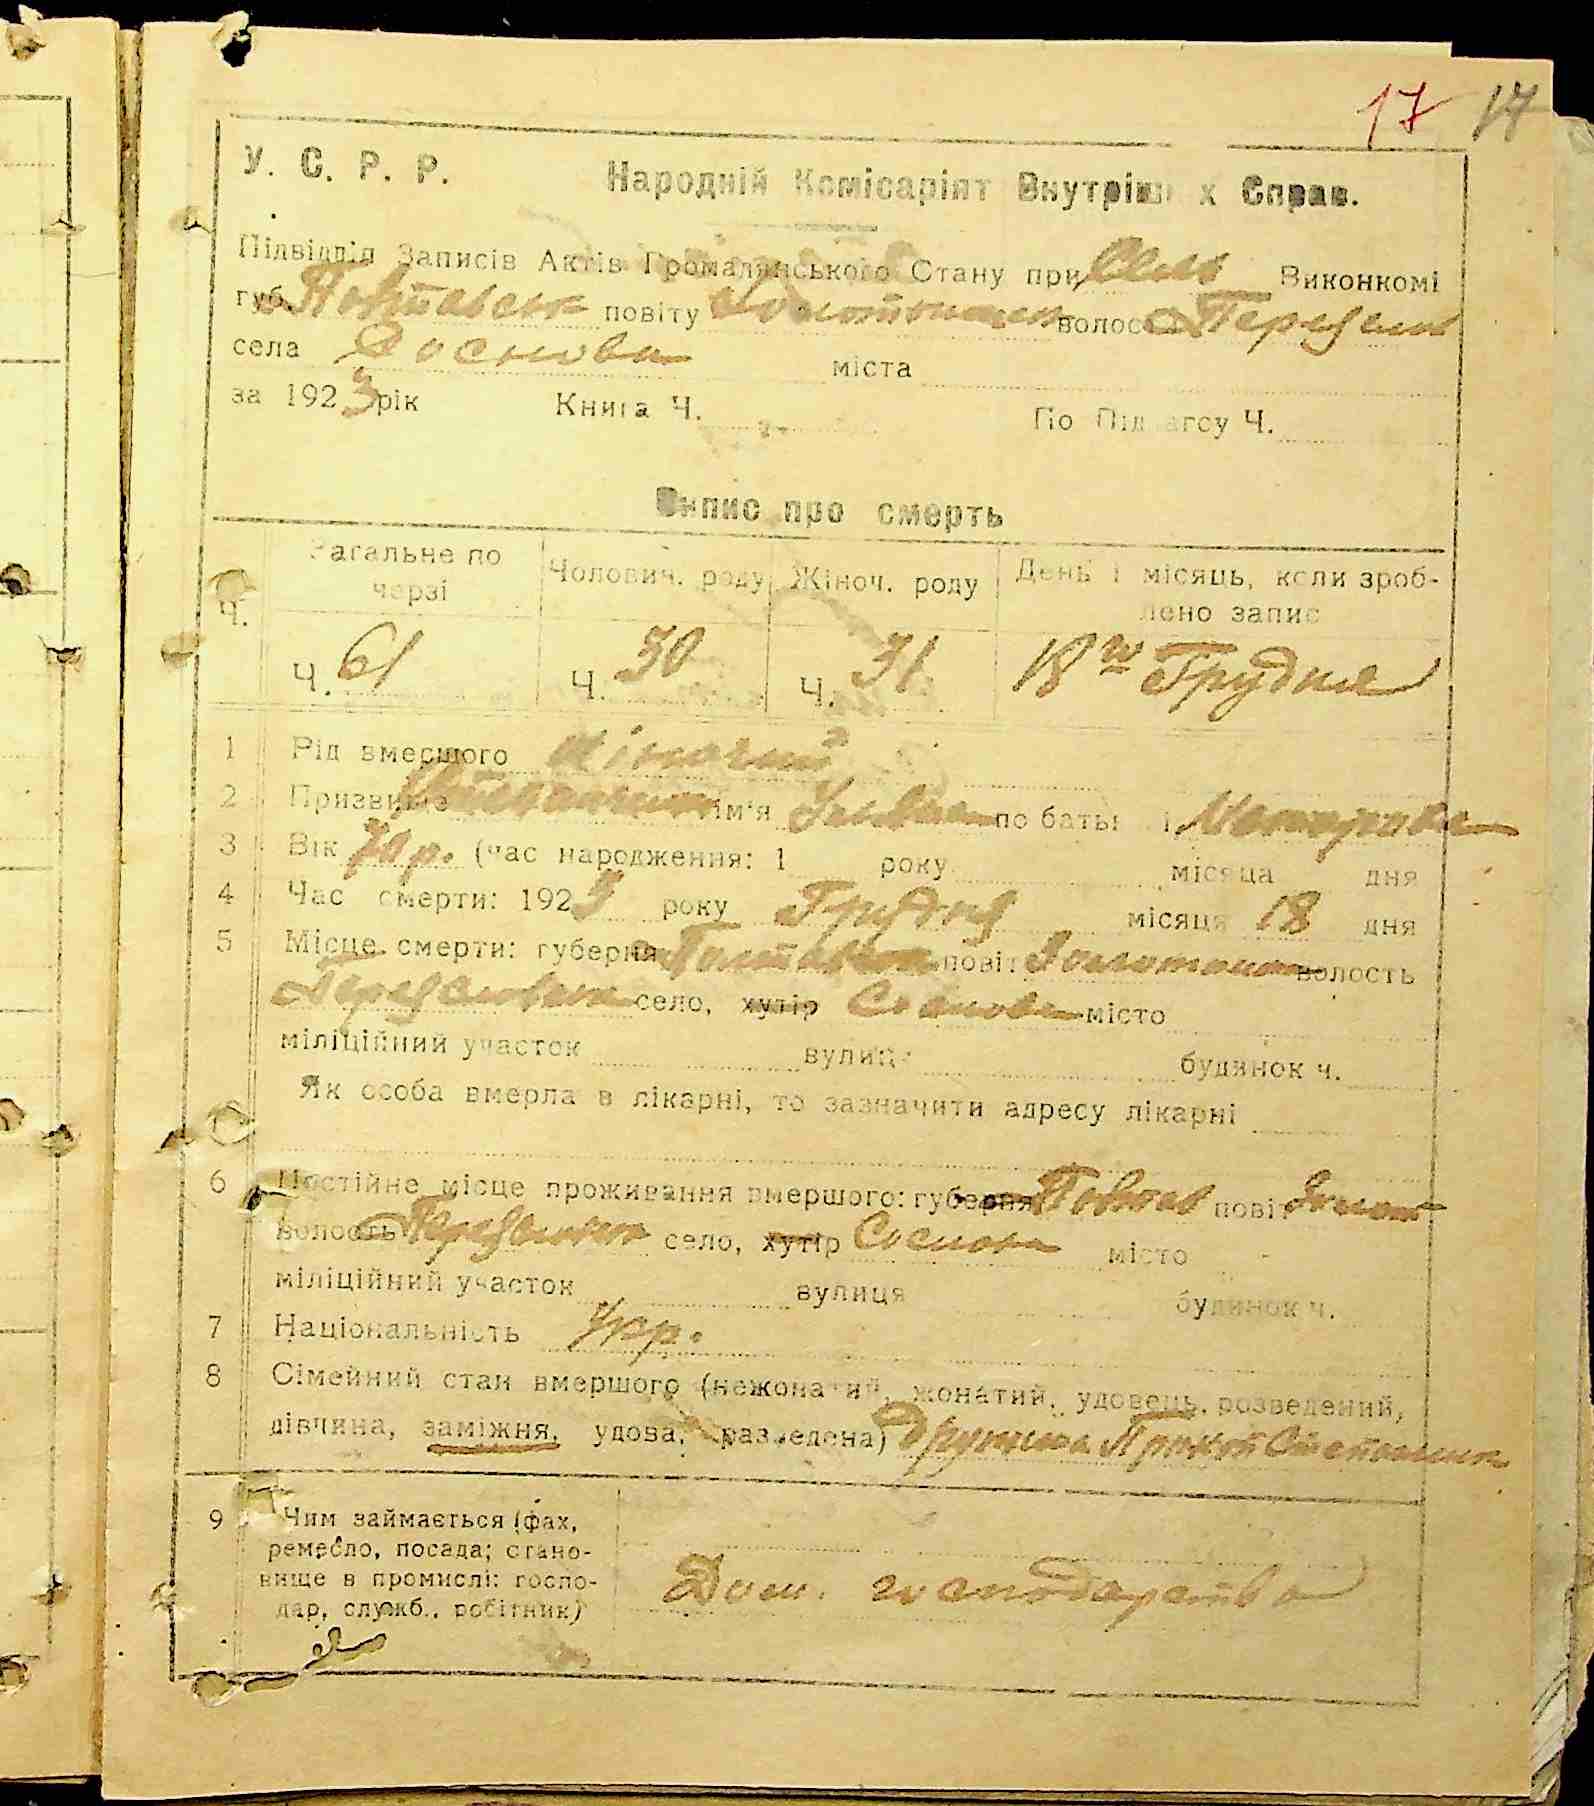 17 17
У. С. Р. Р. Народній Комісаріят Внутрішніх Справ.
Підвідділ Записів Актів Громадянського Стану при Сель Виконкомі
губ. Полтавськ повіту Золотоніськ волости Переяслов
села Соснови міста
за 1923 рік Книга Ч. По Підзагсу Ч.
Випис про смерть
Ч. Загальне по черзі Чоловіч. роду Жіноч. роду День і місяць, коли зроблено запис
Ч. 61 Ч. 30 Ч. 31 18го Грудня
1 Рід вмершого жіночий
2 Призвище ім'я по батькові
3 Вік 70 р. (час народження: 1 року місяца дня
4 Час смерти: 1923 року Грудня місяця 18 дня
5 Місце смерти: губерня Полтавськ повіт Золотонош волость
село, хутір Соснова місто
міліційний участок вулиця будинок ч.
Як особа вмерла в лікарні, то зазначити адресу лікарні
6 Постійне місце проживання вмершого: губерня Полтав повіт Золот
волость село, хутір Соснова місто
міліційний участок вулиця будинок ч.
7 Національність Укр.
8 Сімейний стан вмершого (нежонатий, жонатий, удовець, розведений,
дівчина, заміжня, удова, разведена) дружина
9 Чим займається (фах,
ремесло, посада; стано-
вище в промислі: госпо-
дар, служб., робітник)
Дом. господарство